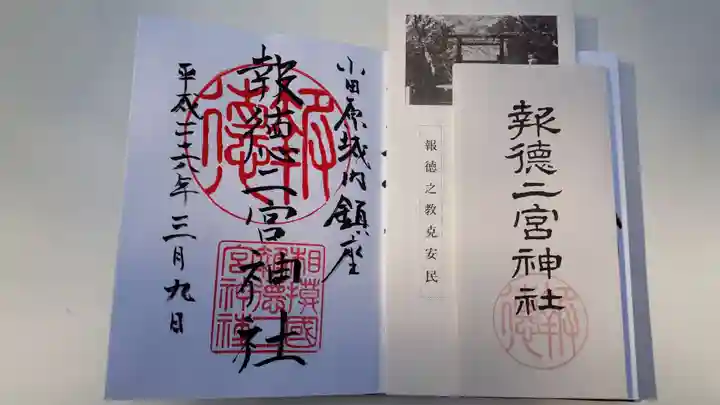 小田原城内鎮座
報徳二宮神社
平成二十六年三月九日
報徳
相摸國
報徳二
宮神社
報徳之教克安民
報徳二宮神社
報徳